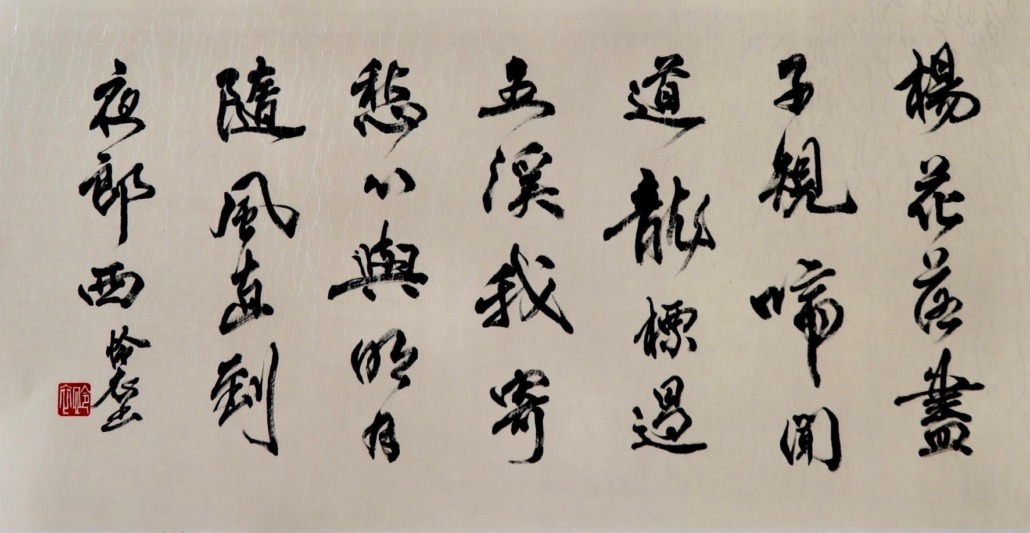 楊花落盡
子規啼聞
道龍標過
五溪我寄
愁心與明月
隨風直到
夜郎西